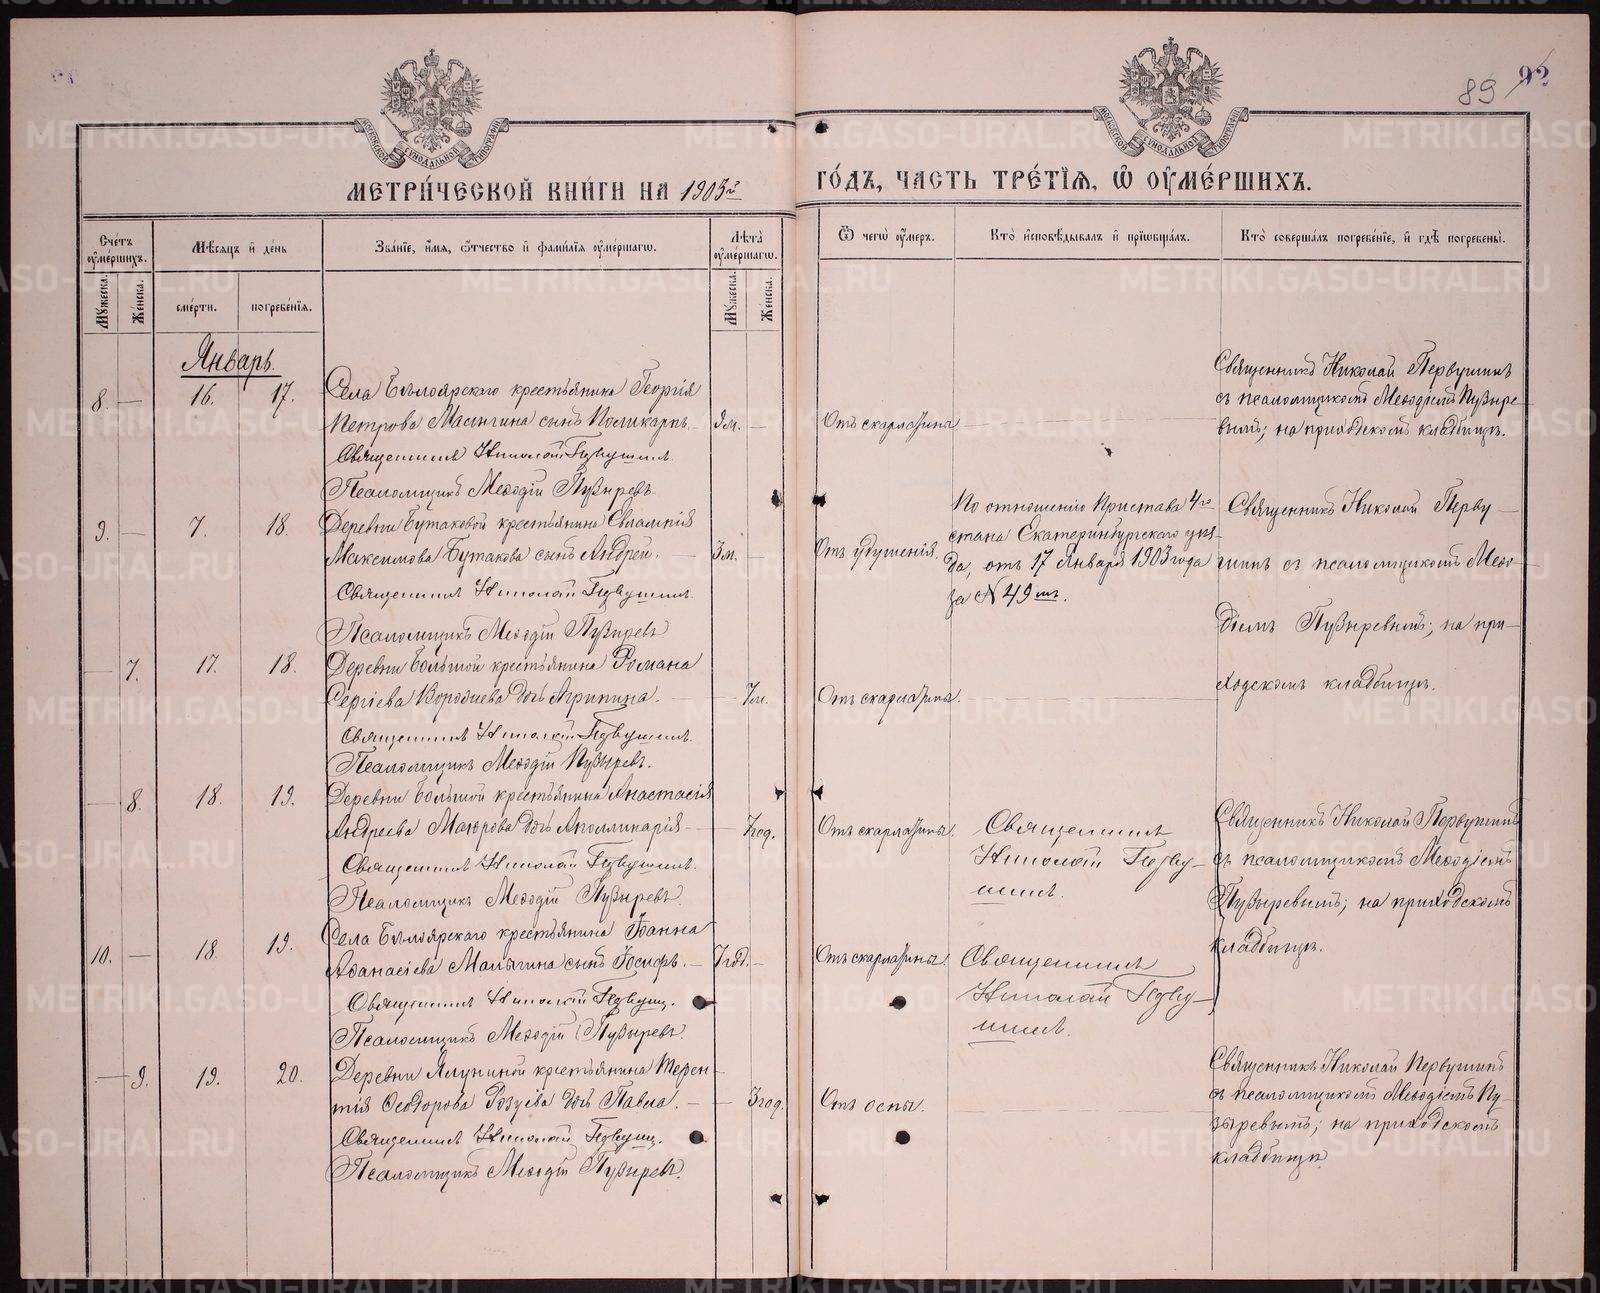 89 92
МОСКОВСКОЙ СУНОДАЛЬНОЙ ТИПОГРАФІИ
МОСКОВСКОЙ СУНОДАЛЬНОЙ ТИПОГРАФІИ
МЕТРИ́ЧЕСКОЙ КНИ́ГИ НА 1903й ГО́ДЪ, ЧАСТЬ ТРЕ́ТІѦ, Ѿ ОУМЕ́РШИХЪ.
Сче́тъ оуме́ршихъ.
Мѣсѧцъ и де́нь
Зва́нїе, и́мѧ, ѻ́тчество и фами́лїѧ оуме́ршагѡ.
Лѣта̀ оуме́ршагѡ.
Ѿ чегѡ̀ оу́меръ.
Кто̀ и҆сповѣ́дывалъ и҆ прїѡбща́лъ.
Кто̀ соверша́лъ погребе́нїе, и҆ гдѣ̀ погребены̀.
Мꙋжеска.
Же́нска.
сме́рти.
погребе́нїѧ.
Мꙋжеска.
Же́нска.
Январь.
8. — 16. 17.
Села Бѣлоярскаго крестьянина Георгія
Петрова Малыгина сынъ Поликарпъ. — 9м. —
Священникъ Николай Первушинъ
Псаломщикъ Меѳодій Пузыревъ.
Отъ скарлатины
Священникъ Николай Первушинъ
съ псаломщикомъ Меѳодіемъ Пузыре-
вымъ; на приходскомъ кладбищѣ.
9. — 7. 18.
Деревни Бутаковой крестьянина Евлампія
Максимова Бутакова сынъ Андрей. — 3м. —
Священникъ Николай Первушинъ
Псаломщикъ Меѳодій Пузыревъ
Отъ удушенія.
По отношенію Пристава 4го
стана Екатеринбургскаго уѣз-
да, отъ 17 Января 1903 года
за № 49мъ.
Священникъ Николай Перву—
шинъ съ псаломщикомъ Меѳо-
діемъ Пузыревымъ; на при—
ходскомъ кладбищѣ.
— 7. 17. 18.
Деревни Большой крестьянина Романа
Сергіева дочь Агрипина. — 7м.
Священникъ Николай Первушинъ.
Псаломщикъ Меѳодій Пузыревъ.
Отъ скарлатины.
— 8. 18. 19.
Деревни Большой крестьянина Анастасія
Андреева Маюрова дочь Аполлинарія — 7год.
Священникъ Николай Первушинъ.
Псаломщикъ Меѳодій Пузыревъ.
Отъ скарлатины.
Священникъ
Николай Перву—
шинъ.
Священникъ Николай Первушинъ
съ псаломщикомъ Меѳодіемъ
Пузыревымъ; на приходскомъ
кладбищѣ.
10. — 18. 19.
Села Бѣлоярскаго крестьянина Іоанна
Аѳанасіева Малыгина сынъ Іосифъ. — 7год. —
Священникъ Николай Первуш.
Псаломщикъ Меѳодій Пузыревъ.
Отъ скарлатины.
Священникъ
Николай Перву—
шинъ.
— 9. 19. 20.
Деревни Ялуниной крестьянина Терен-
тія Ѳеодорова дочь Павла. — 3год.
Священникъ Николай Первуш.
Псаломщикъ Меѳодій Пузыревъ.
Отъ оспы.
Священникъ Николай Первушинъ
съ псаломщикомъ Меѳодіемъ Пу-
зыревымъ; на приходскомъ
кладбищѣ.
METRIKI.GASO-URAL.RU